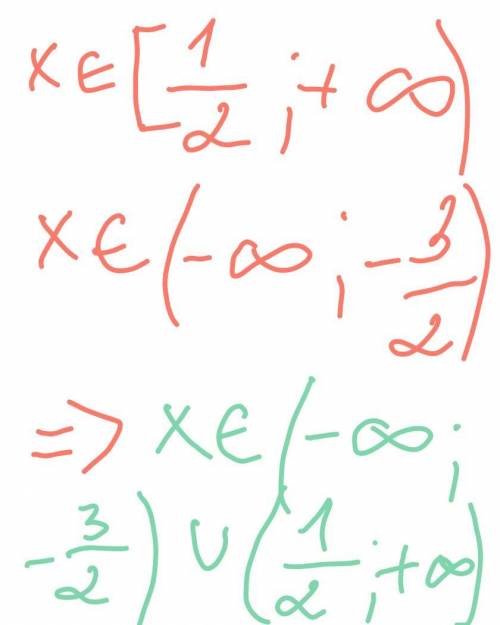 x ∈ [1/2 ; + ∞)
x ∈ (- ∞ ; - 3/2)
=> x ∈ (- ∞ ;
- 3/2) ∪ (1/2 ; + ∞)